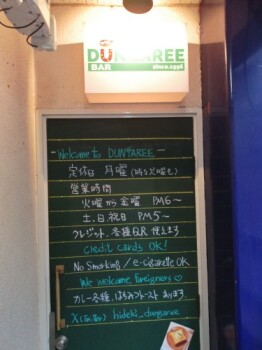 DUNGAREE
BAR
since.1996
-Welcome to DUNGAREE-
定休日 月曜(時々火曜も)
営業時間
火曜から金曜 PM6~
土.日.祝日 PM5~
クレジット.各種QR使えます
credit cards OK!
No Smorking/e-cigarette OK
We welcome foreigners♡
カレー各種.はちみつトーストあります.
hideki_dungaree